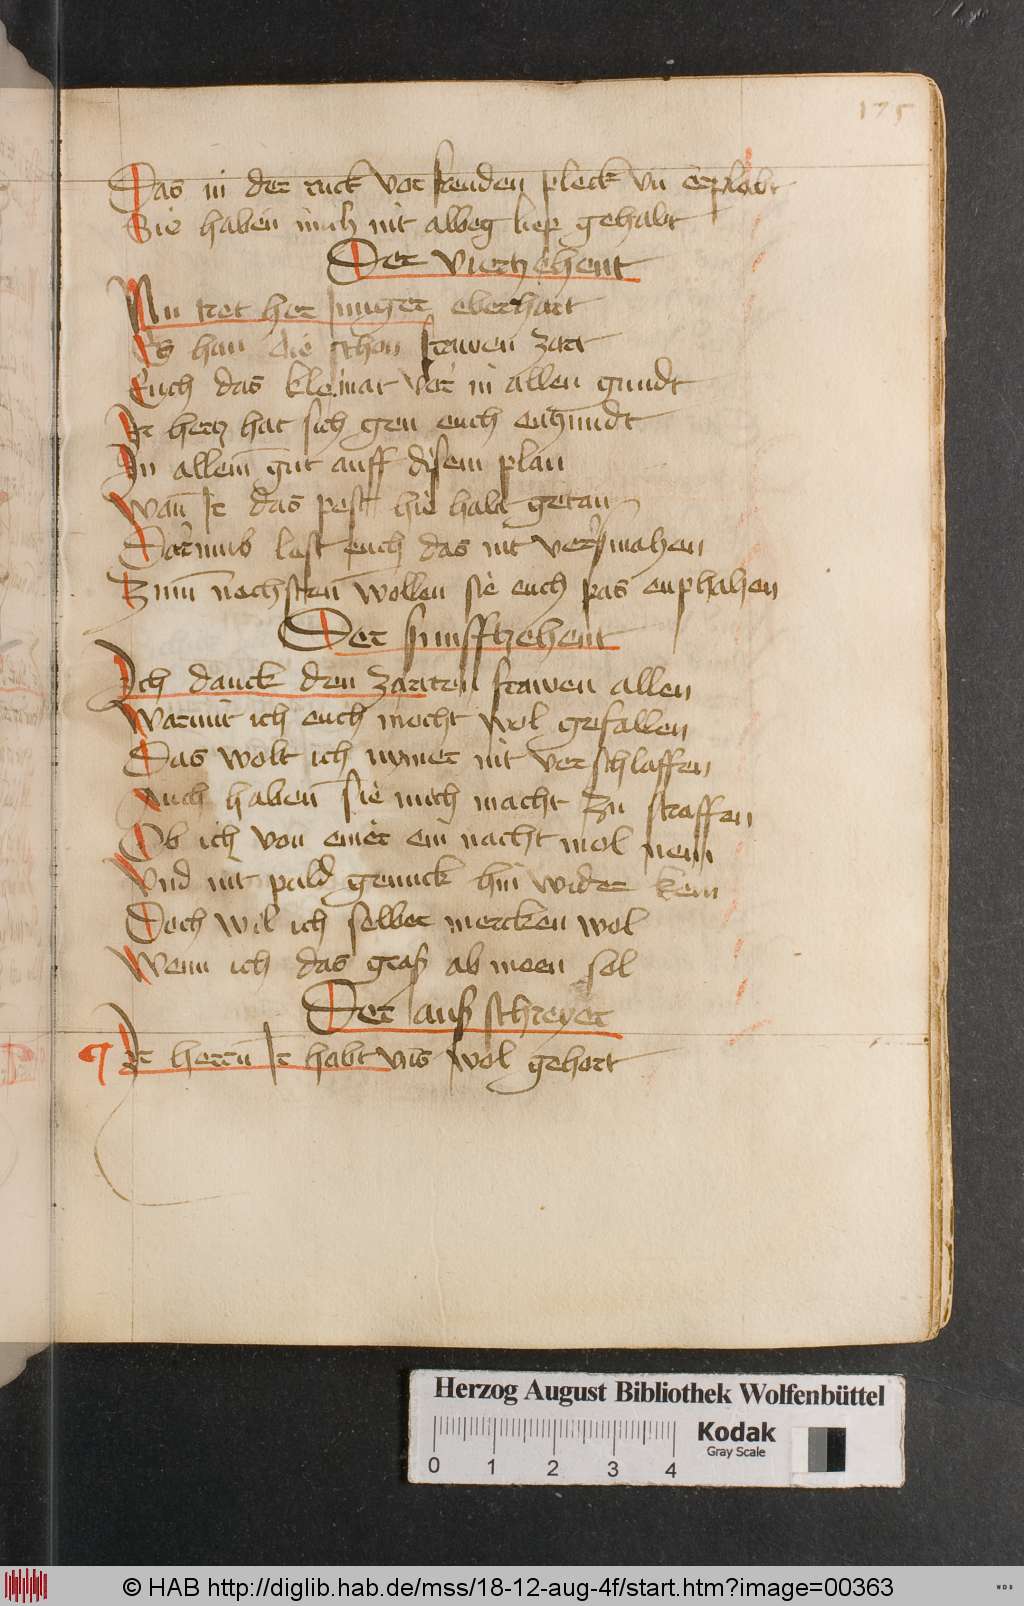 175
Das in der ruck vor freuden pleck vn erplobt
Sie haben mich nit albeg liep gehabt
Der viertzehent
Nu tret her Junger eberhart
Es han die schon frawen zart
Euch das kleinat vor in allen gundt
Ir hertz hat sich gen euch enzundt
In allem gut auff disem plan
Wan̄ Ir das pest hie habt getan
Darumb last euch das nit versmahen
Zum nechsten wollen sie euch pas enphahen
Der funfftzehent
Ich danck den zarten frawen allen
Warmit ich euch mocht wol gefallen
Das wolt ich nymer nit verschlaffen
Auch haben sie mich macht zu straffen
Ob ich von einer ein nacht mol nem
Vnd nit pald genuck hin wider kem
Doch wil ich selber mercken wol
Wenn ich das graß ab meen sol
Der auß schreyer
Ir herrn Ir habt vns wol gehort
Herzog August Bibliothek Wolfenbüttel
Kodak
Gray Scale
0 1 2 3 4
© HAB http://diglib.hab.de/mss/18-12-aug-4f/start.htm?image=00363